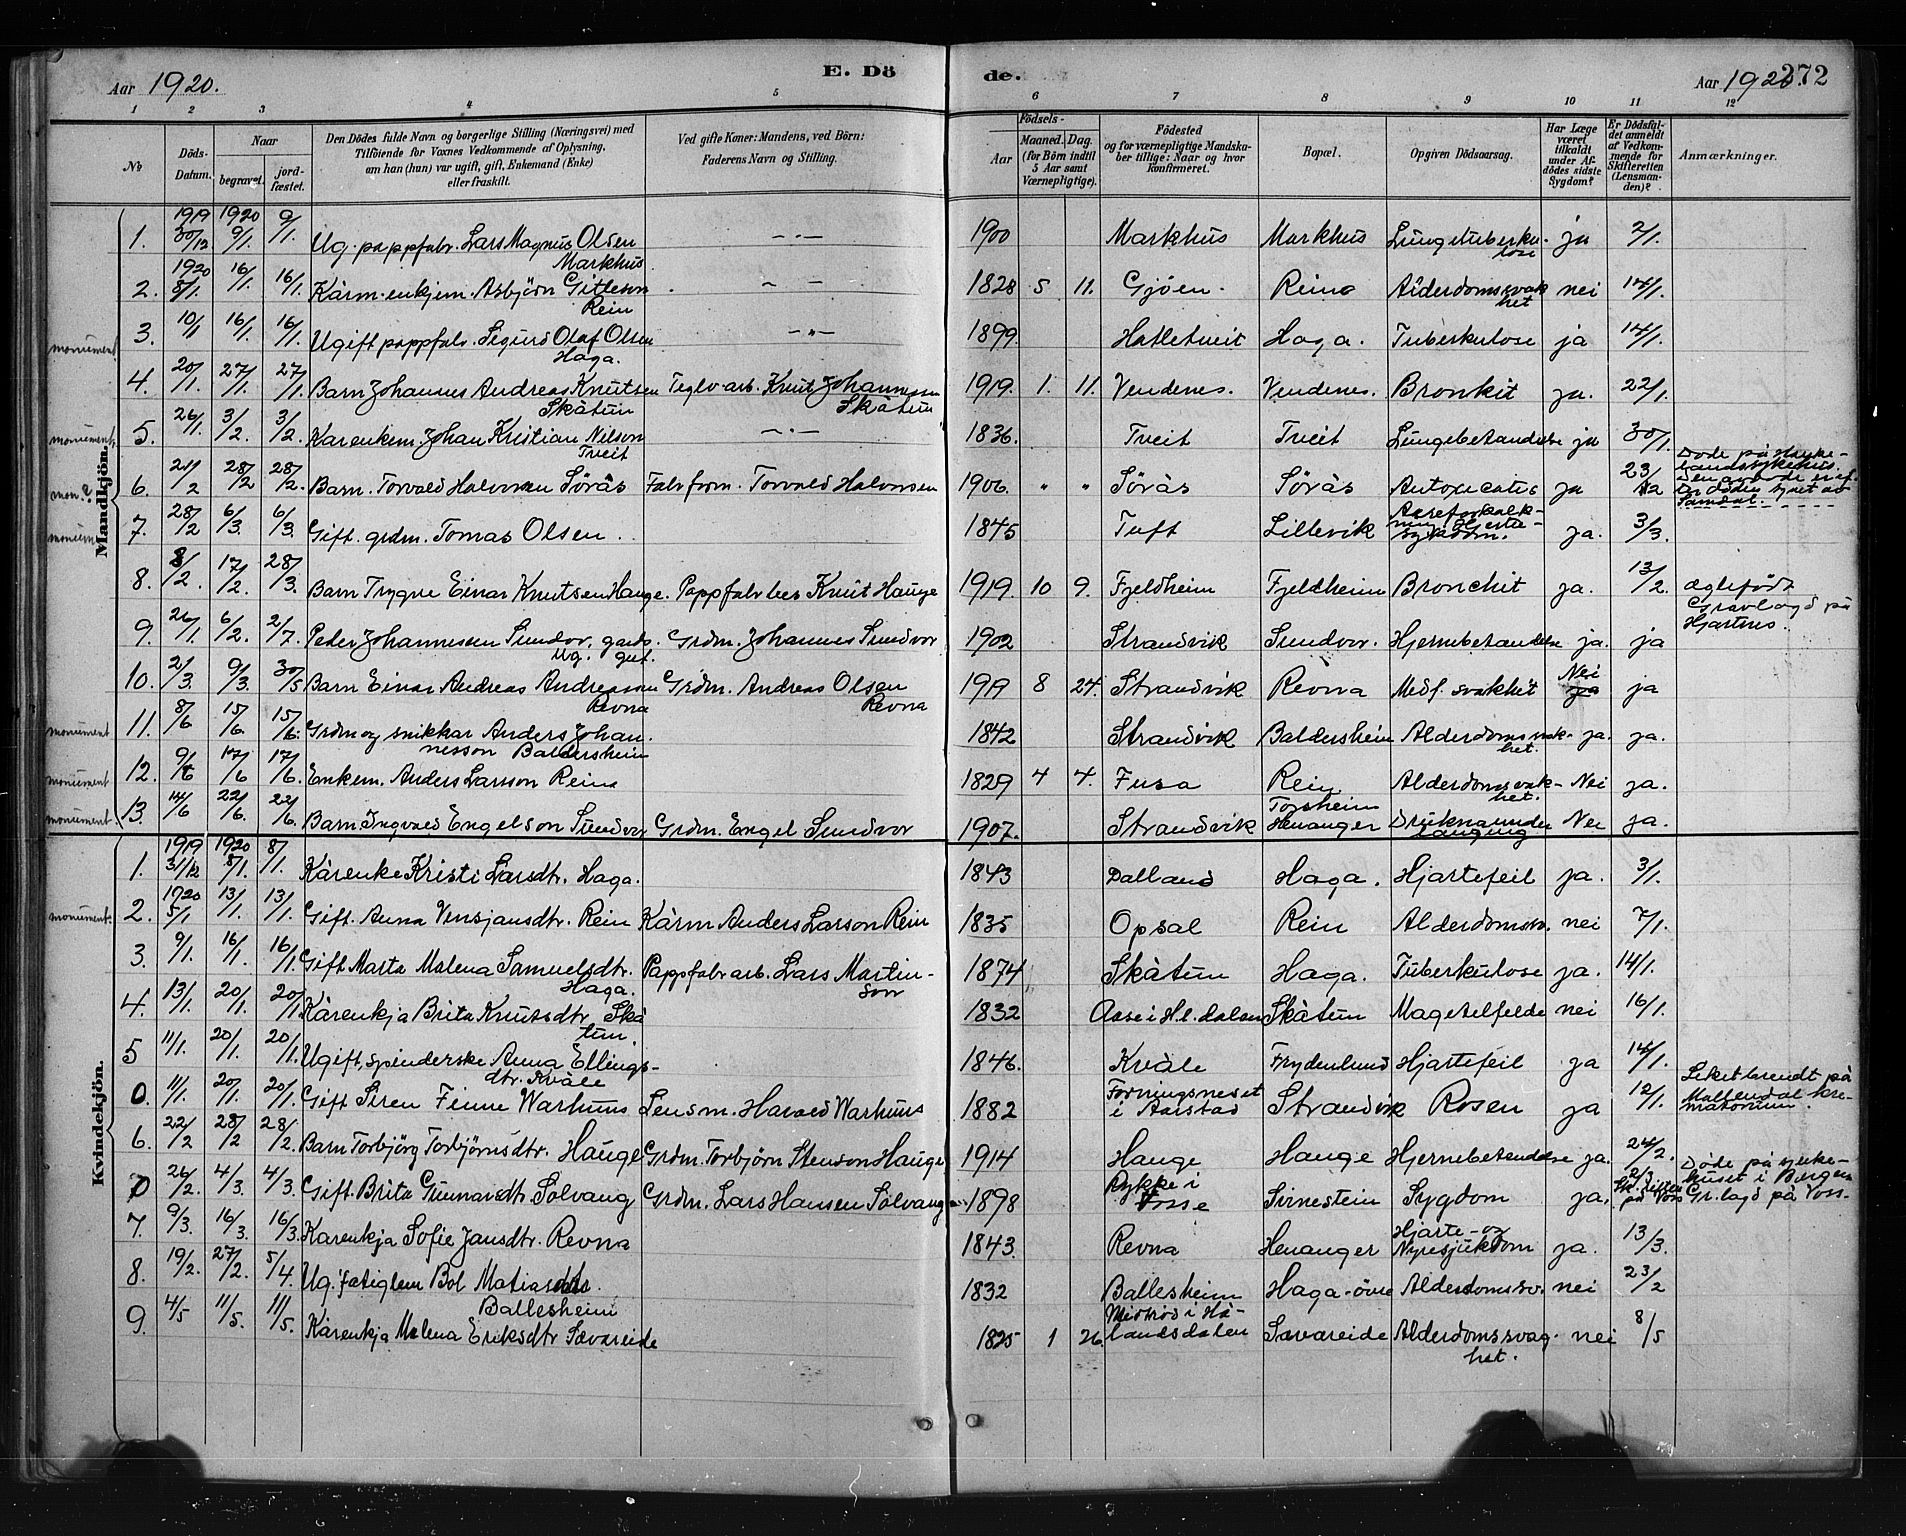 Aar 1920. E. Dö de. Aar 1920. 272
1 2 3 4 5 6 7 8 9 10 11 12
No
Döds-Datum.
Naar
begravet.
jordfæstet.
Den Dödes fulde Navn og borgerlige Stilling (Næringsvei) med
Tilföiende for Voxnes Vedkommende af Oplysning,
om han (hun) var ugift, gift, Enkemand (Enke)
eller fraskilt.
Ved gifte Koner: Mandens, ved Börn:
Faderens Navn og Stilling.
Födsels-
Aar
Maaned. Dag.
(for Börn indtil
5 Aar samt
Værnepligtige).
Födested
og for værnepligtige Mandskaber tillige: Naar og hvor
konfirmeret.
Bopæl.
Opgiven Dödsaarsag.
Har Læge
været
tilkaldt
under Afdödes sidste
Sygdom?
Er Dödsfaldet anmeldt
af Vedkommende for
Skifteretten
(Lensmanden)?
Anmærkninger.
Mandkjön.
1. 1919 30/12 1920 9/1 9/1. Ug. pappfabr. Lars Magnus Olsen Markhus 1900 Markhus Markhus Lungetuberkulose ja 2/1.
2. 1920 8/1. 16/1. 16/1. Kårm. enkjem. Asbjörn Gitleson Rein 1828 5 11. Gjöen. Rein Alderdomssvakhet nei 14/1.
monument 3. 10/1 16/1. 16/1. Ugift pappfab. Sigurd Olaf Olsen Haga. 1899 Hatletveit Haga. Tuberkulose ja 14/1.
4. 20/1. 27/1. 27/1. Barn Johannes Andreas Knutsen Skåtun Teglv-arb. Knut Johannessen Skåtun 1919. 1. 11. Vendenes. Vendenes. Bronkit ja. 22/1.
monument. 5. 26/1. 3/2. 3/2. Kårenkem. Johan Kristian Nilson Tveit 1836. Tveit Tveit Lungebetændelse ja 30/1.
mon? 6. 21/2 28/2 28/2. Barn. Torvald Halvorsen Sörås Fabrform. Torvald Halvorsen 1906. " " Sörås Sörås ja 23/12 Döde på Haukelandssykehus.
7. 28/2 6/3. 6/3. Gift. grdm. Tomas Olsen. 1845 Tuft Lillevik Aareforkalkning, Hjertesygdom. ja. 3/3.
8. 8/2. 17/2. 28/3. Barn Trygve Einar Knutsen Hauge. Pappfabrbes Knut Hauge 1919. 10 9. Fjeldheim Fjeldheim Bronchit ja. 13/2. Ægtefödt
9. 26/1. 6/2. 2/7. Peder Johannessen Sundvor, gards. ug. gut. Grdm. Johannes Sundvor 1902 Strandvik Sundvor. Hjernebetændelse ja. ja Gravlagd på Hjartnes.
10. 2/3. 9/3. 30/5 Barn Einar Andreas Andreassen Revna Grdm. Andreas Olsen Revna 1919 8 24. Strandvik Revna Medf. svakhet Nei ja
monument 11. 8/6 15/6. 15/6. Grdm og snikkar Anders Johannesson Baldersheim 1842 Strandvik Baldersheim Alderdomssvakhet. ja. ja.
monument 12. 9/6 17/6 17/6. Enkem. Anders Larsson Rein 1829 4 4. Fusa Rein Alderdomssvakhet. Nei ja.
monument 13. 14/6 22/6. 22/6. Barn Ingvald Engelson Sundvor Grdm. Engel Sundvor 1907. Strandvik Torsheim Henanger Druknaunder Nei ja.
Kvindekjön.
1. 1919 31/12 1920 8/1. 8/1. Kårenke Kristi Larsdtr. Haga. 1843 Dalland Haga. Hjartefeil ja. 3/1.
monument. 2. 1920 5/1 13/1. 13/1. Gift. Anna Vensjansdtr. Rein Kårm Anders Larson Rein 1835 Opsal Rein Alderdomssv. nei 7/1.
3. 9/1. 16/1. 16/1. Gift Marta Malena Samuelsdtr. Haga. Pappfabr arb. Lars Martinson 1874 Skåtun Haga. Tuberkulose ja. 14/1.
4. 13/1. 20/1. 20/1. Kårenkja Brita Knutsdtr Skåtun. 1832 Aase i H.l.dalen Skåtun nei 16/1.
5 11/1. 20/1. 20/1. Ugift, spinderske Anna Ellingsdtr. Kvåle 1846. Kvåle Frydenlund Hjartefeil ja 14/1.
0. 11/1. 20/1. 20/1. Gift Siren Finne Warhuus Lensm. Harald Warhuus 1882 Forningsneset i Aarstad Strandvik Rosen ja 12/1. Liket brendt på Möllendal krematorium.
6. 22/2 28/2 28/2. Barn Torbjörg Torbjörnsdtr. Hauge Grdm. Torbjörn Stenson Hauge 1914 Hauge Hauge Hjernebetændelse ja. 24/2.
0 26/2. 4/3. 4/3. Gift. Brita Gunnarsdtr. Solvang Grdm. Lars Hansen Solvang 1898 Rykke i Vosse Sirnestein Sygdom ja. på Voss Döde på sjukehuset i Bergen Gr.lagd på Voss.
7. 9/3. 16/3. 16/3. Kårenkja Sofie Jansdtr. Revna 1843. Revna Henanger Hjarte- og Nyresjukdom ja. 13/3.
8. 19/2. 27/2. 5/4. Ug. fatiglem Bol Matiasdtr. Ballesheim 1832 Ballesheim Haga-övre Alderdomssv. nei 23/2
9. 4/5 11/5. 11/5. Kårenkja Malena Eriksdtr Sævareide 1825 1 26. i Hålandsdalen Sævareide Alderdomssvaghet. nei 8/5